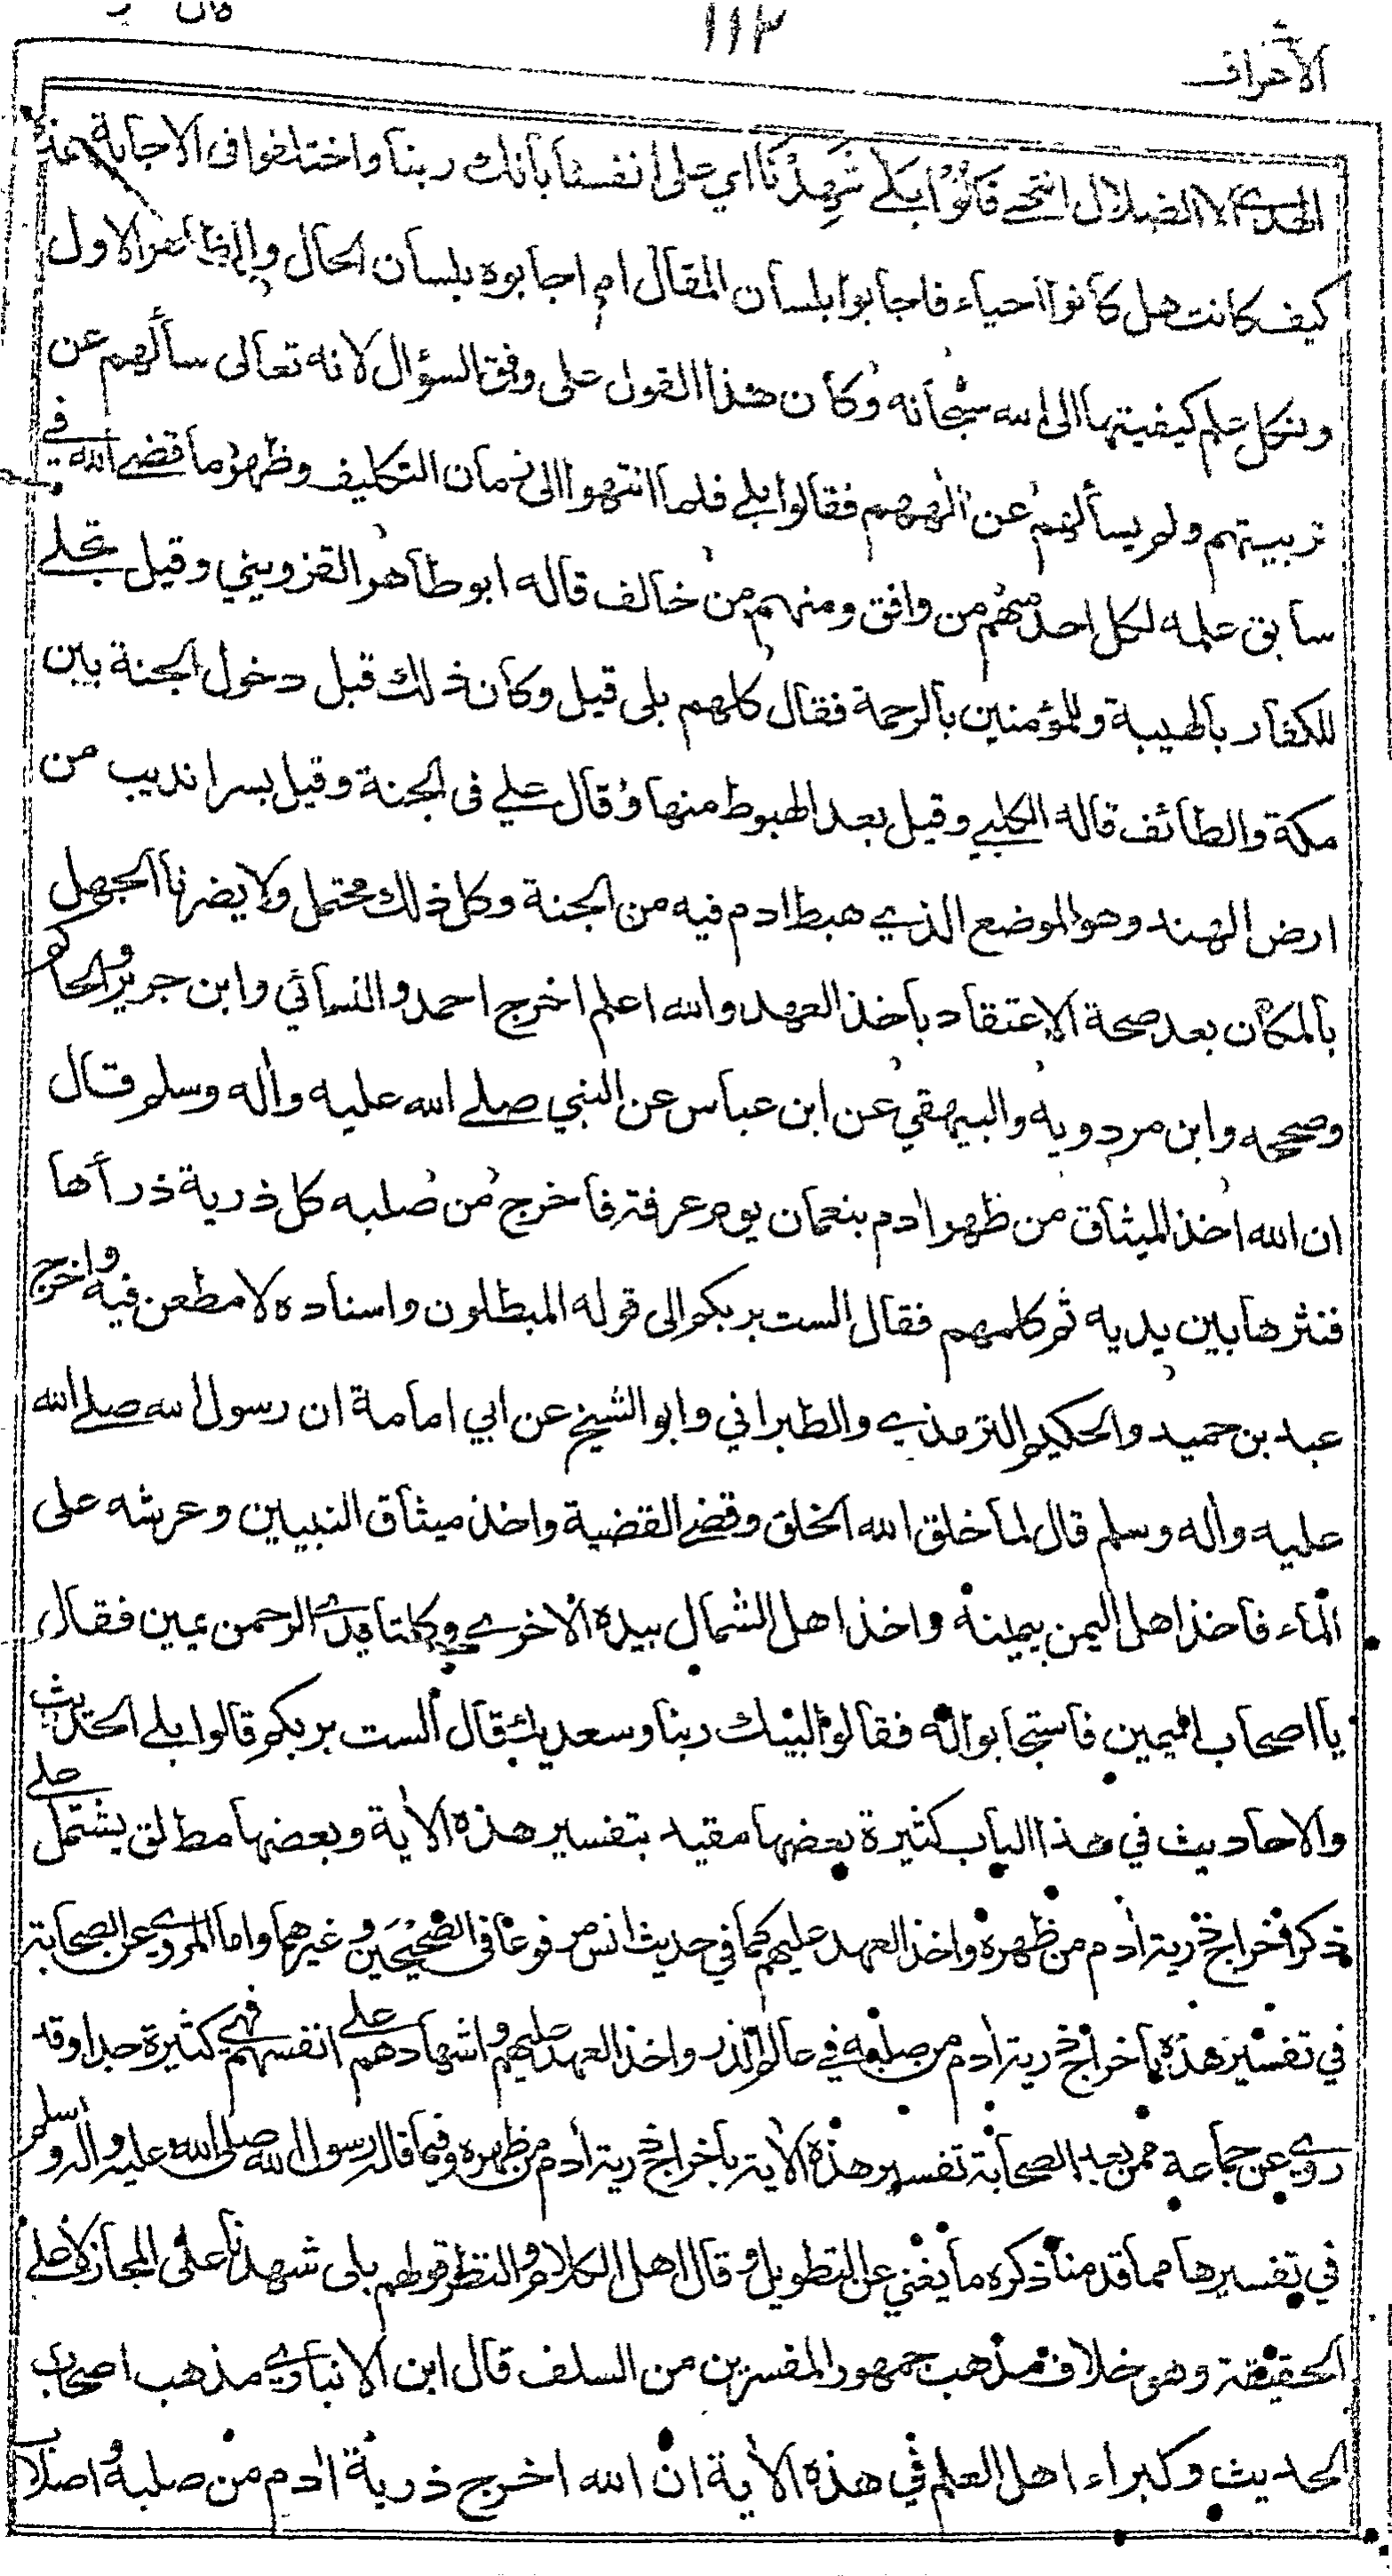 ١١٣
الأعراف
الهدى لا الضلال انتهى قَالُوْا بَلٰى شَهِدْنَا اي على أنفسنا بأنك ربنا واختلفوا فى الاجابة هذه
كيف كانت هل كانوا احياء فاجابوا بلسان المقال ام اجابوه بلسان الحال والظاهر الاول
ونكل علم كيفيتها الى الله سبحانه وكان هذا القول على وفق السؤال لانه تعالى سألهم عن
تربيتهم ولم يسألهم عن الههم فقالوا بلى فلما انتهوا الى زمان التكليف وظهر ما قضى الله في
سابق علمه لكل احد منهم من وافق ومنهم من خالف قاله ابو طاهر القزويني وقيل تجلى
للكفار بالهيبة وللمؤمنين بالرحمة فقال كلهم بلى قيل وكان ذلك قبل دخول الجنة بين
مكة والطائف قاله الكلبي وقيل بعد الهبوط منها وقال علي فى الجنة وقيل بسرانديب من
ارض الهند وهو الموضع الذي هبط ادم فيه من الجنة وكل ذلك محتمل ولا يضرنا الجهل
بالمكان بعد صحة الاعتقاد بأخذ العهد والله اعلم اخرج احمد والنسائي وابن جرير والحاكم
وصححه وابن مردويه والبيهقي عن ابن عباس عن النبي صلى الله عليه واٰله وسلم قال
ان الله اخذ الميثاق من ظهر ادم بنعمان يوم عرفة فاخرج من صلبه كل ذرية ذرأها
فنثرها بين يديه ثم كلمهم فقال الست بربكم الى قوله المبطلون واسناده لا مطعن فيه واخرج
عبد بن حميد والحكيم الترمذي والطبراني وابو الشيخ عن ابي امامة ان رسول الله صلى الله
عليه واٰله وسلم قال لما خلق الله الخلق وقضى القضية واخذ ميثاق النبيين وعرشه على
الماء فأخذ اهل اليمن بيمينه واخذ اهل الشمال بيده الاخرى وكلتا يدي الرحمن يمين فقال
يا اصحاب اليمين فاستجابوا له فقالوا لبيك ربنا وسعديك قال ألست بربكم قالوا بلى الحديث
والاحاديث في هذا الباب كثيرة بعضها مقيد بتفسير هذه الاٰية وبعضها مطلق يشتمل على
ذكر اخراج ذرية اٰدم من ظهره واخذ العهد عليهم كما في حديث انس مرفوعا فى الصحيحين وغيرهما واما المروي عن الصحابة
في تفسير هذه باخراج ذرية اٰدم من صلبه في عالم الذر واخذ العهد عليهم واشهادهم على انفسهم فهي كثيرة جدا وقد
روي عن جماعة ممن بعد الصحابة تفسير هذه الاٰية باخراج ذرية اٰدم من ظهره وفيما قاله رسول الله صلى الله عليه واٰله وسلم
في تفسيرها مما قدمنا ذكره ما يغني عن التطويل وقال اهل الكلام والنظر قولهم بلى شهدنا على المجاز لا على
الحقيقة وهو خلاف مذهب جمهور المفسرين من السلف قال ابن الانباري مذهب اصحاب
الحديث وكبراء اهل العلم في هذه الاٰية ان الله اخرج ذرية اٰدم من صلبه واصلاب